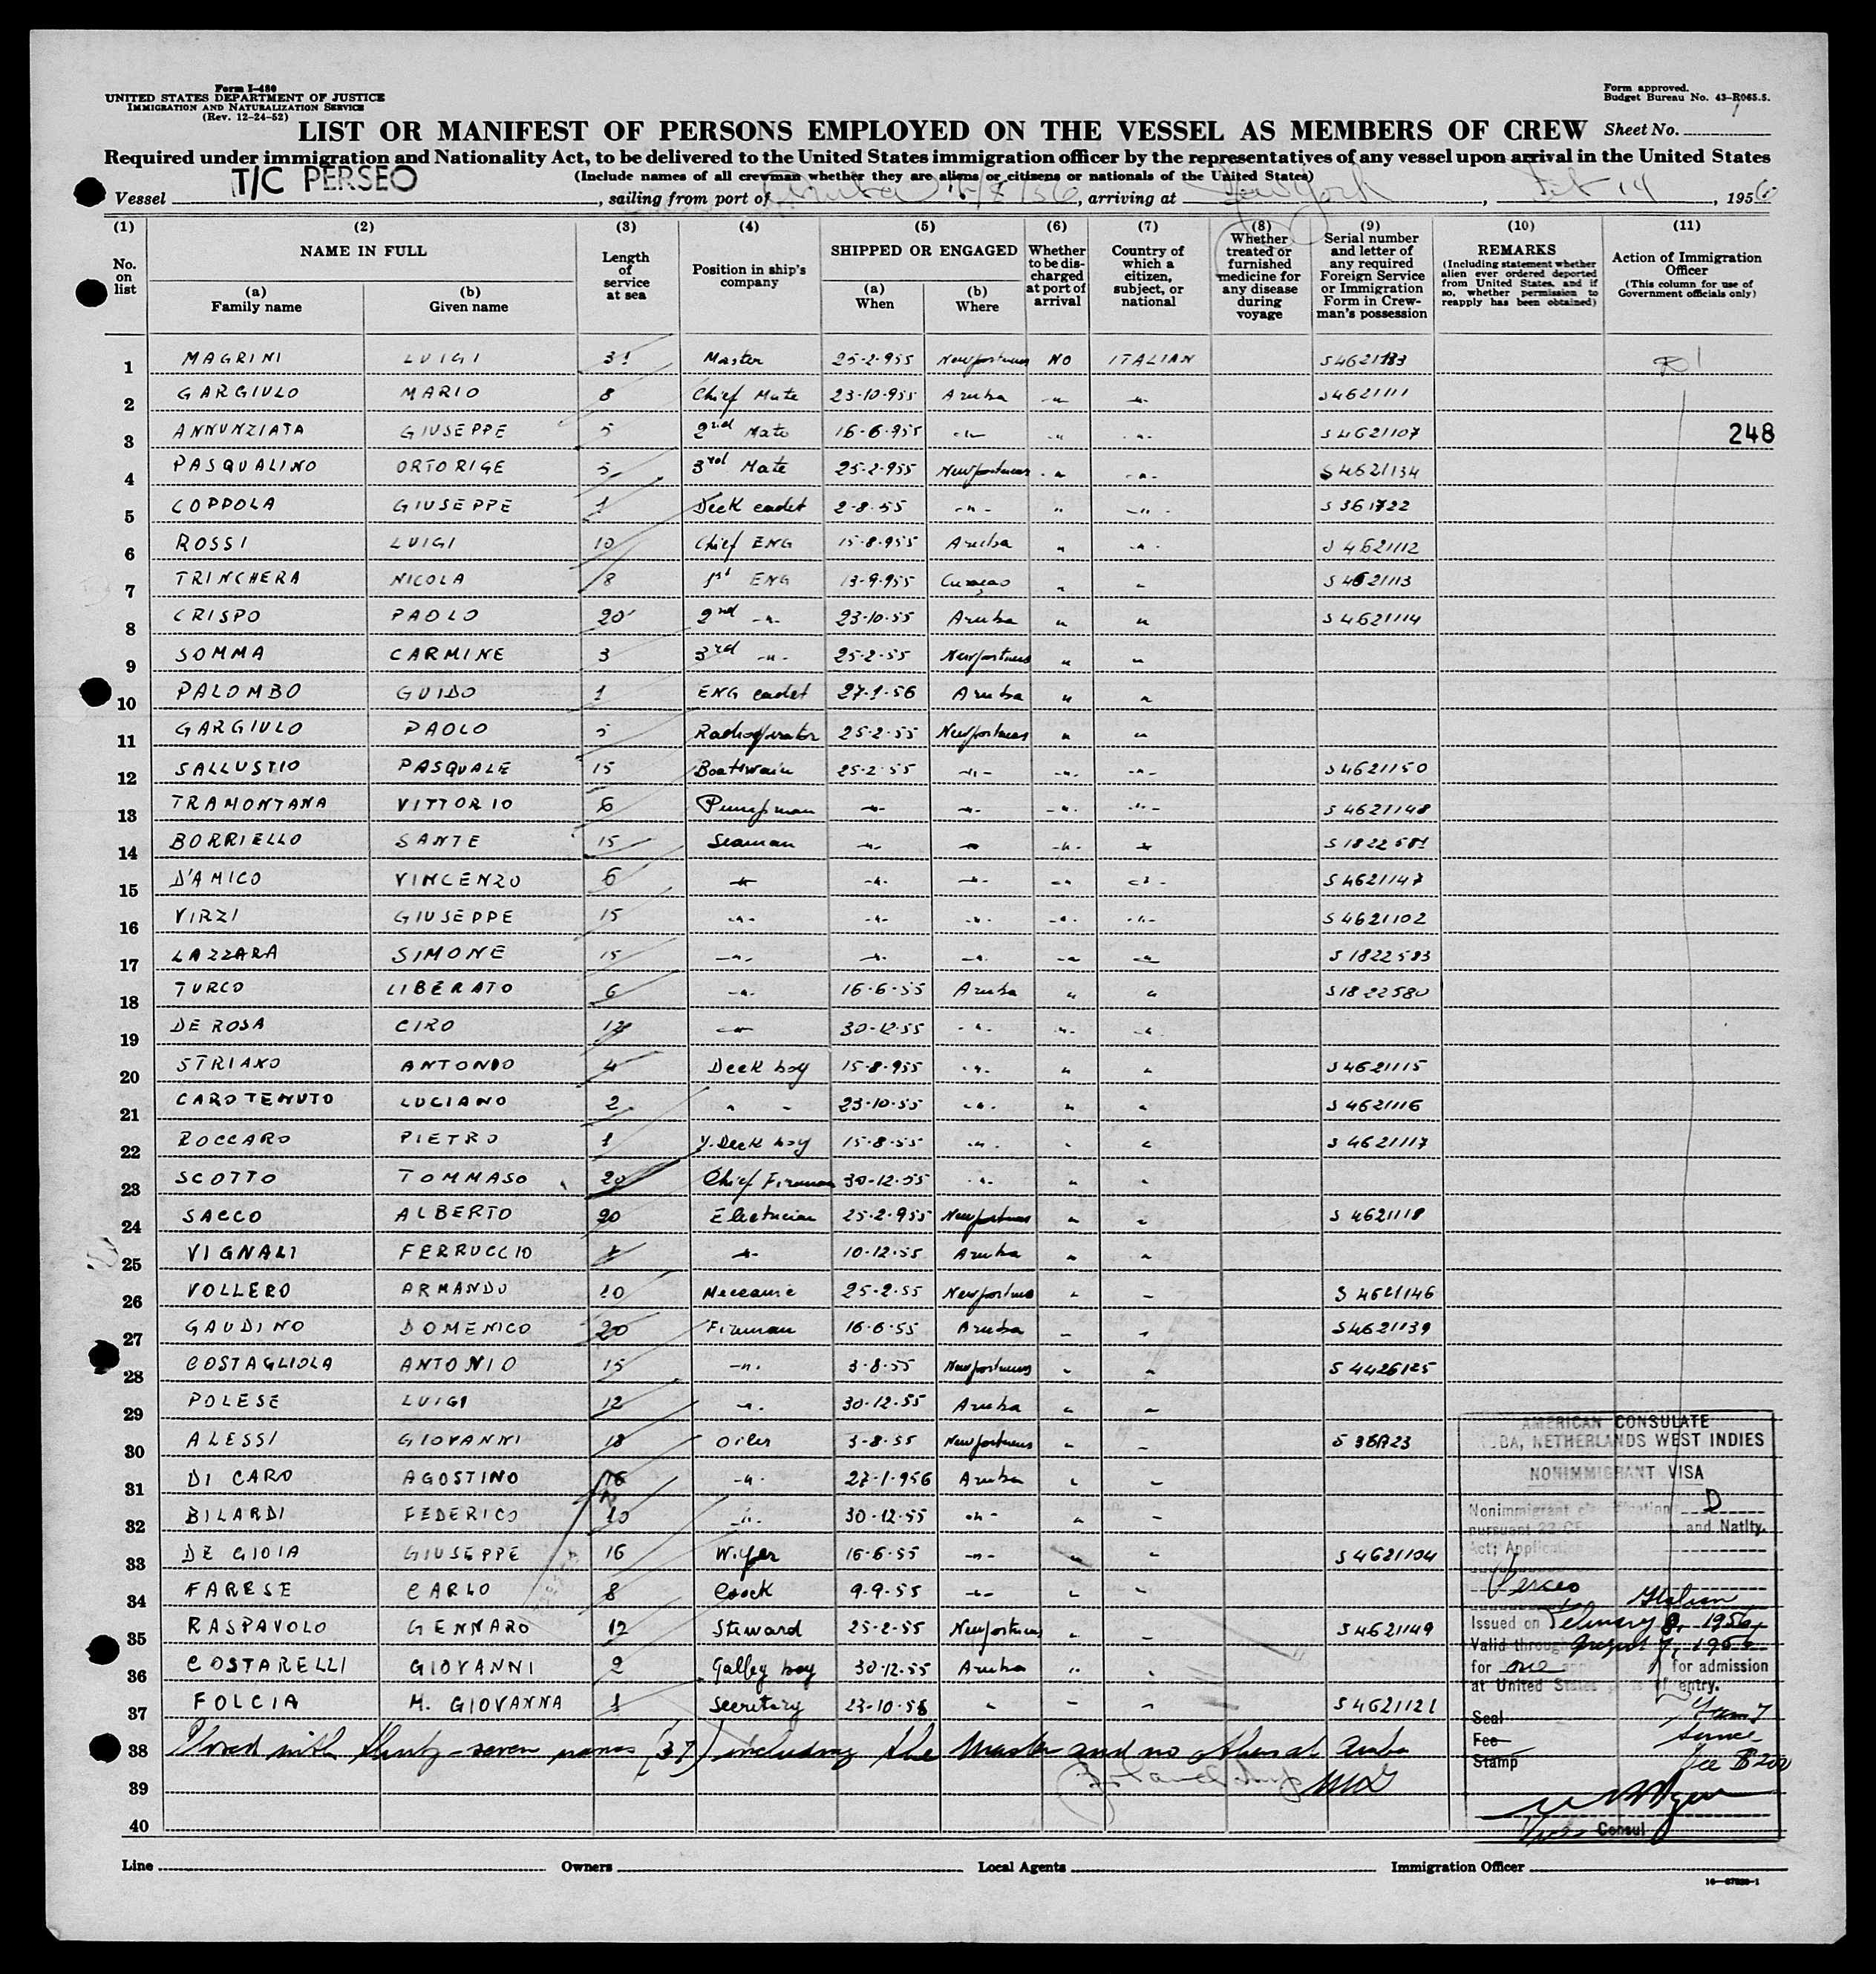 Form I-480
UNITED STATES DEPARTMENT OF JUSTICE
IMMIGRATION AND NATURALIZATION SERVICE
(Rev. 12-24-52)
Form approved.
Budget Bureau No. 43-R065.5.
LIST OR MANIFEST OF PERSONS EMPLOYED ON THE VESSEL AS MEMBERS OF CREW
Sheet No. 1
Required under immigration and Nationality Act, to be delivered to the United States immigration officer by the representatives of any vessel upon arrival in the United States
(Include names of all crewman whether they are aliens or citizens or nationals of the United States)
Vessel T/C PERSEO, sailing from port of Aruba 2/8/56, arriving at New York, Feb 14, 1956
(1) (2) (3) (4) (5) (6) (7) (8) (9) (10) (11)
No. on list
NAME IN FULL
(a) Family name
(b) Given name
Length of service at sea
Position in ship's company
SHIPPED OR ENGAGED
(a) When
(b) Where
Whether to be discharged at port of arrival
Country of which a citizen, subject, or national
Whether treated or furnished medicine for any disease during voyage
Serial number and letter of any required Foreign Service or Immigration Form in Crewman's possession
REMARKS
(Including statement whether alien ever ordered deported from United States, and if so, whether permission to reapply has been obtained)
Action of Immigration Officer
(This column for use of Government officials only)
1 MAGRINI LUIGI 31 Master 25-2-955 Newportnews NO ITALIAN S4621133
2 GARGIULO MARIO 8 Chief Mate 23-10-955 Aruba -"- -"- S4621111
3 ANNUNZIATA GIUSEPPE 5 2nd Mate 16-6-955 -"- -"- -"- S4621107 248
4 PASQUALINO ORTORIGE 5 3rd Mate 25-2-955 Newportnews -"- -"- S4621134
5 COPPOLA GIUSEPPE 1 Deck cadet 2-8-55 -"- " -"- S361722
6 ROSSI LUIGI 10 Chief ENG 15-8-955 Aruba " -"- S4621112
7 TRINCHERA NICOLA 18 1st ENG 13-9-955 Curaçao " " S4621113
8 CRISPO PAOLO 20 2nd -"- 23-10-55 Aruba " " S4621114
9 SOMMA CARMINE 3 3rd -"- 25-2-55 Newportnews " "
10 PALOMBO GUIDO 1 ENG cadet 27-1-56 Aruba " "
11 GARGIULO PAOLO 5 Radioperator 25-2-55 Newportnews " "
12 SALLUSTIO PASQUALE 15 Boatswain 25-2-55 -"- -"- -"- S4621150
13 TRAMONTANA VITTORIO 6 Pumpman -"- -"- -"- -"- S4621148
14 BORRIELLO SANTE 15 Seaman -"- -"- -"- -"- S1822581
15 D'AMICO VINCENZO 6 -"- -"- -"- -"- -"- S4621147
16 VIRZI GIUSEPPE 15 -"- -"- -"- -"- -"- S4621102
17 LAZZARA SIMONE 15 -"- -"- -"- -"- -"- S1822583
18 TURCO LIBERATO 6 -"- 16-6-55 Aruba " " S1822580
19 DE ROSA CIRO 12 -"- 30-12-55 -"- -"- -"-
20 STRIANO ANTONIO 4 Deck boy 15-8-955 -"- " " S4621115
21 CAROTENUTO LUCIANO 2 " " 23-10-55 -"- " " S4621116
22 ROCCARO PIETRO 1 Y. Deck boy 15-8-55 -"- " " S4621117
23 SCOTTO TOMMASO 20 Chief Fireman 30-12-55 -"- " "
24 SACCO ALBERTO 20 Electrician 25-2-955 Newportnews " " S4621118
25 VIGNALI FERRUCCIO 1 -"- 10-12-55 Aruba " "
26 VOLLERO ARMANDO 10 Meccanic 25-2-55 Newportnews " " S4621146
27 GAUDINO DOMENICO 20 Fireman 16-6-55 Aruba " " S4621139
28 COSTAGLIOLA ANTONIO 15 -"- 3-8-55 Newportnews " " S4426125
29 POLESE LUIGI 12 -"- 30-12-55 Aruba " "
30 ALESSI GIOVANNI 18 Oiler 3-8-55 Newportnews " "
31 DI CARO AGOSTINO 16 -"- 27-1-956 Aruba " "
32 BILARDI FEDERICO 10 -"- 30-12-55 -"- " "
33 DE GIOIA GIUSEPPE 16 Wiper 16-6-55 -"- " " S4621104
34 FARESE CARLO 8 Coock 9-9-55 -"- " "
35 RASPAVOLO GENNARO 12 Steward 25-2-55 Newportnews " " S4621149
36 COSTARELLI GIOVANNI 2 Galley boy 30-12-55 Aruba " "
37 FOLCIA M. GIOVANNA 1 Secretary 23-10-55 " " " S4621121
38 Closed with thirty-seven names (37) including the Master and no others at Aruba
39
40
AMERICAN CONSULATE
ARUBA, NETHERLANDS WEST INDIES
NONIMMIGRANT VISA
Nonimmigrant classification D
pursuant 22 CF and Natlty.
Act; Application
Perseo
Italian
Issued on February 8, 1956
Valid through August 7, 1956
for one application for admission
at United States ports of entry.
Seal
Fee
Stamp
Fee $2.00
Vice Consul
Line Owners Local Agents Immigration Officer